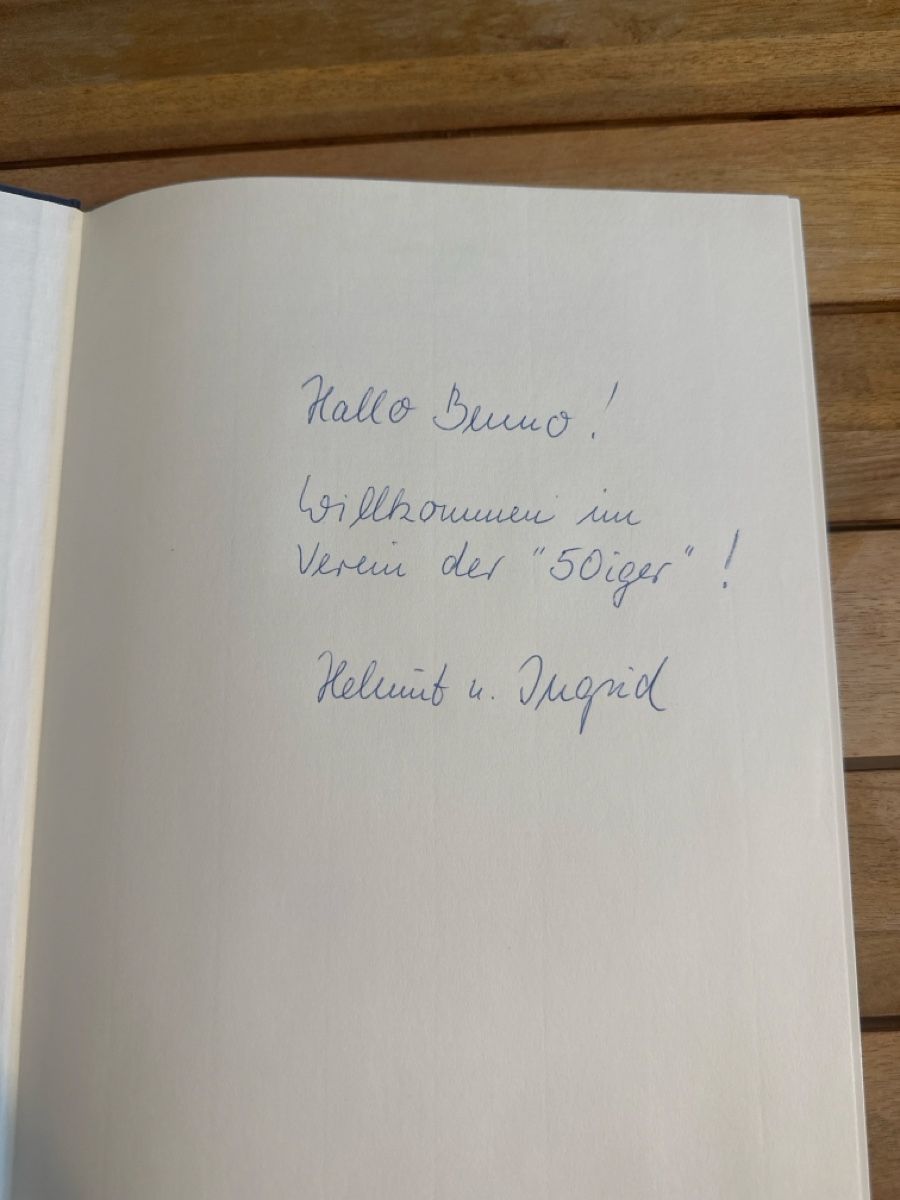 Hallo Benno!
Willkommen im
Verein der "50iger"!
Helmut u. Ingrid